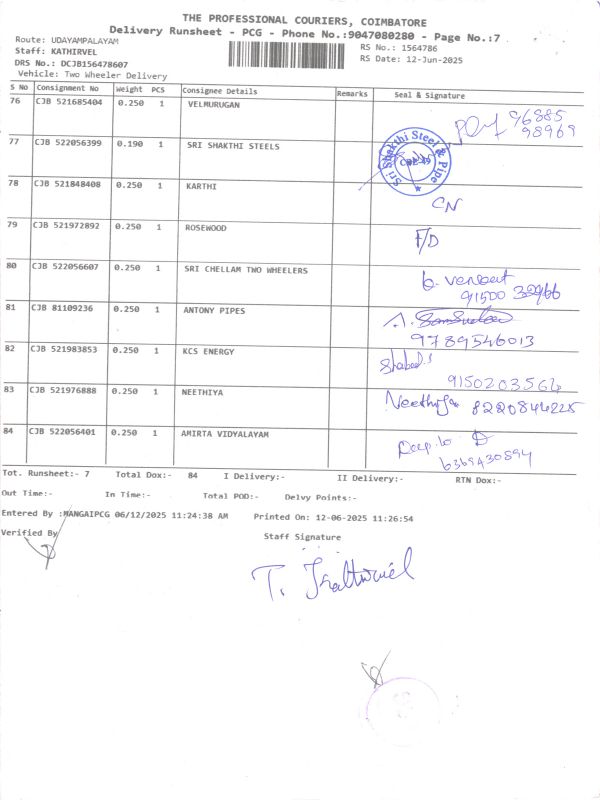 THE PROFESSIONAL COURIERS, COIMBATORE
Delivery Runsheet - PCG - Phone No.:9047080280 - Page No.:7
Route: UDAYAMPALAYAM
RS No.: 1564786
Staff: KATHIRVEL
RS Date: 12-Jun-2025
DRS No.: DCJB156478607
Vehicle: Two Wheeler Delivery
S No Consignment No Weight PCS Consignee Details Remarks Seal & Signature
76 CJB 521685404 0.250 1 VELMURUGAN
96885
98969
77 CJB 522056399 0.190 1 SRI SHAKTHI STEELS
Sri Shakthi Steel & Pipe
78 CJB 521848408 0.250 1 KARTHI
CN
79 CJB 521972892 0.250 1 ROSEWOOD
F/D
80 CJB 522056607 0.250 1 SRI CHELLAM TWO WHEELERS
91500
81 CJB 81109236 0.250 1 ANTONY PIPES
9789546013
82 CJB 521983853 0.250 1 KCS ENERGY
9150203564
83 CJB 521976888 0.250 1 NEETHIYA
Neethiya 8220844225
84 CJB 522056401 0.250 1 AMIRTA VIDYALAYAM
6369430894
Tot. Runsheet:- 7 Total Dox:- 84 I Delivery:- II Delivery:- RTN Dox:-
Out Time:- In Time:- Total POD:- Delvy Points:-
Entered By :MANGAIPCG 06/12/2025 11:24:38 AM Printed On: 12-06-2025 11:26:54
Verified By Staff Signature